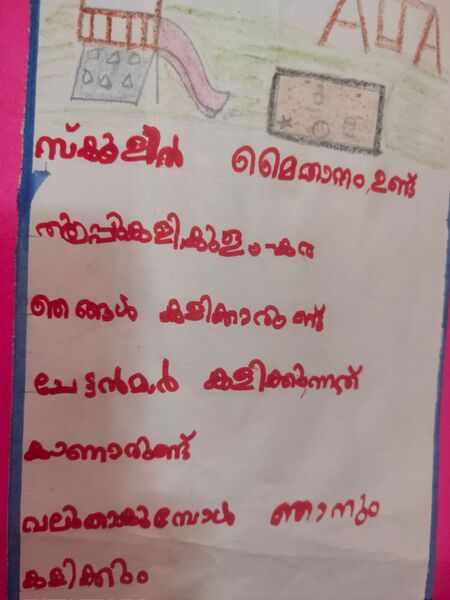 സ്കൂളിൽ മൈതാനം ഉണ്ട്
ഞങ്ങൾ കളിക്കാറുണ്ട്
ചേട്ടൻമാർ കളിക്കുന്നത്
കാണാറുണ്ട്
വലുതാകുമ്പോൾ ഞാനും
കളിക്കും